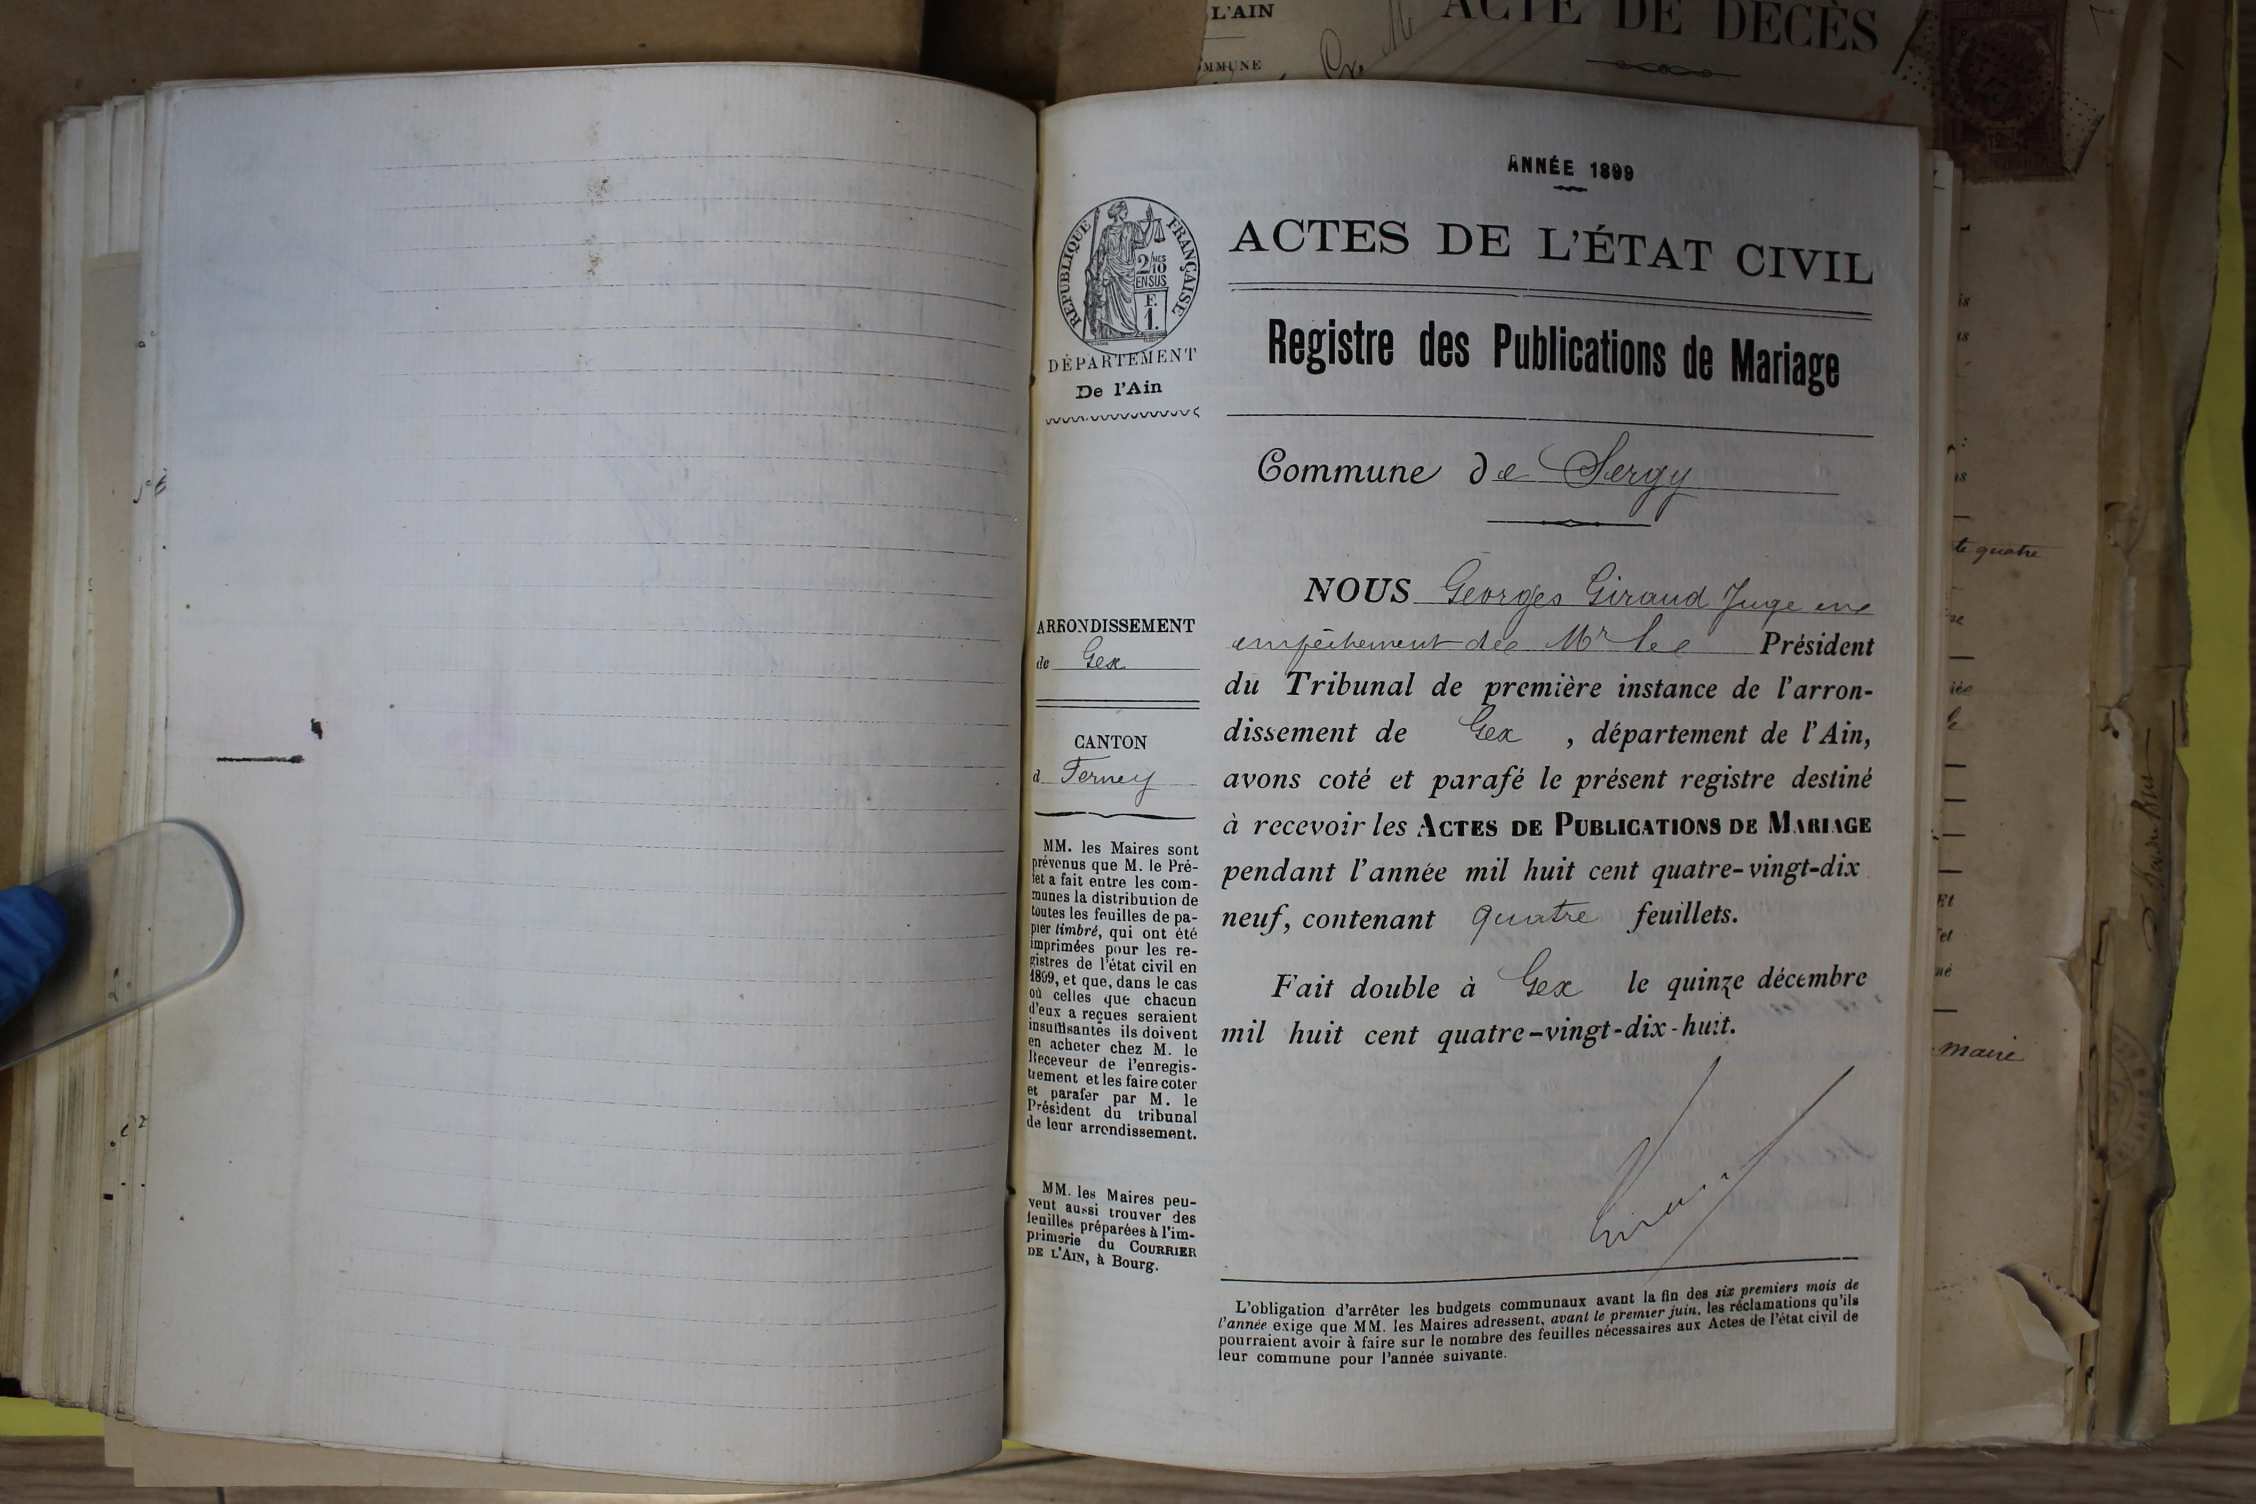 L'AIN
OMMUNE
ACTE DE DÉCÈS
ANNÉE 1899
RÉPUBLIQUE FRANÇAISE
2/10
EN SUS
F.
1.
DÉPARTEMENT
De l'Ain
ACTES DE L'ÉTAT CIVIL
Registre des Publications de Mariage
Commune de Sergy
ARRONDISSEMENT
de Gex
CANTON
d Ferney
MM. les Maires sont
prévenus que M. le Pré-
fet a fait entre les com-
munes la distribution de
toutes les feuilles de pa-
pier timbré, qui ont été
imprimées pour les re-
gistres de l'état civil en
1899, et que, dans le cas
où celles que chacun
d'eux a reçues seraient
insuffisantes ils doivent
en acheter chez M. le
Receveur de l'enregis-
trement et les faire coter
et parafer par M. le
Président du tribunal
de leur arrondissement.
MM. les Maires peu-
vent aussi trouver des
feuilles préparées à l'im-
primerie du COURRIER
DE L'AIN, à Bourg.
NOUS Georges Giraud Juge en
empêchement de Mr le Président
du Tribunal de première instance de l'arron-
dissement de Gex , département de l'Ain,
avons coté et parafé le présent registre destiné
à recevoir les ACTES DE PUBLICATIONS DE MARIAGE
pendant l'année mil huit cent quatre-vingt-dix
neuf, contenant quatre feuillets.
Fait double à Gex le quinze décembre
mil huit cent quatre-vingt-dix-huit.
L'obligation d'arrêter les budgets communaux avant la fin des six premiers mois de
l'année exige que MM. les Maires adressent, avant le premier juin, les réclamations qu'ils
pourraient avoir à faire sur le nombre des feuilles nécessaires aux Actes de l'état civil de
leur commune pour l'année suivante.
te quatre
maire